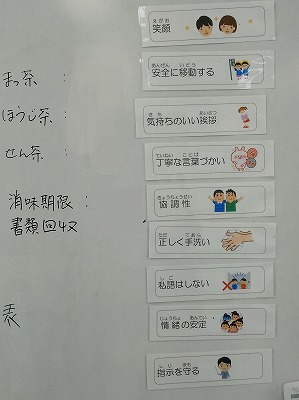 えがお
笑顔
あんぜん いどう
安全に移動する
きも あいさつ
気持ちのいい挨拶
ていねい ことば
丁寧な言葉づかい
きょうちょうせい
協調性
ただ てあら
正しく手洗い
しご
私語はしない
じょうちょ あんてい
情緒の安定
しじ まも
指示を守る
まっ茶 :
ほうじ茶 :
せん茶 :
消味期限 :
書類回収
表